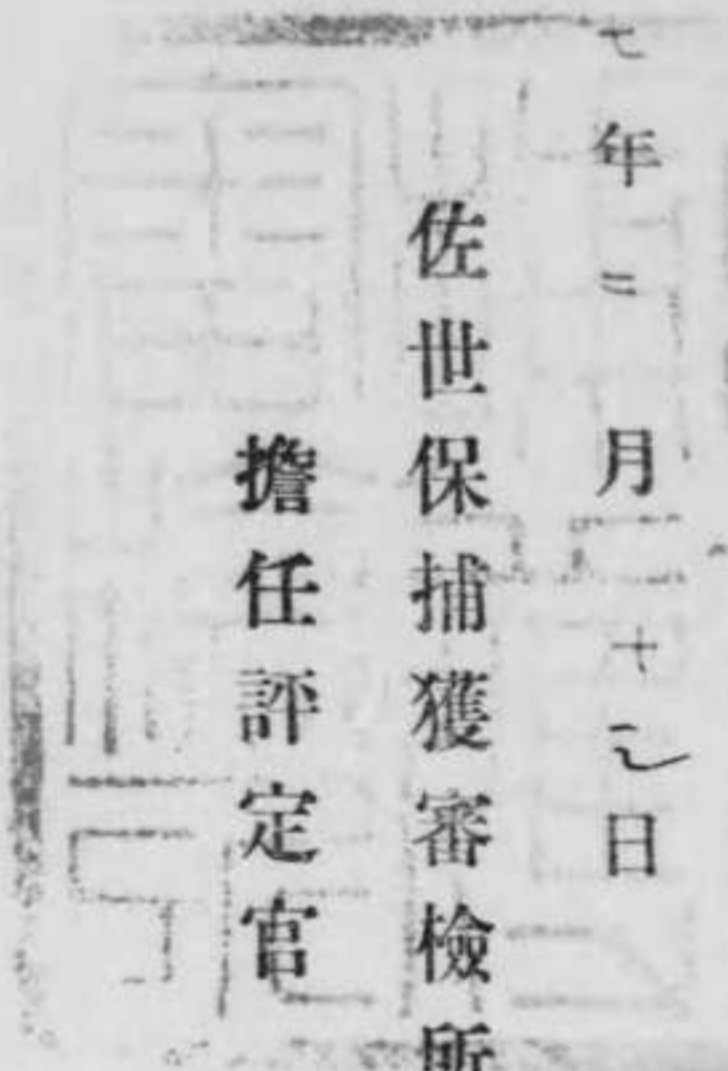 七年二月十二日
佐世保捕獲審檢所
擔任評定官